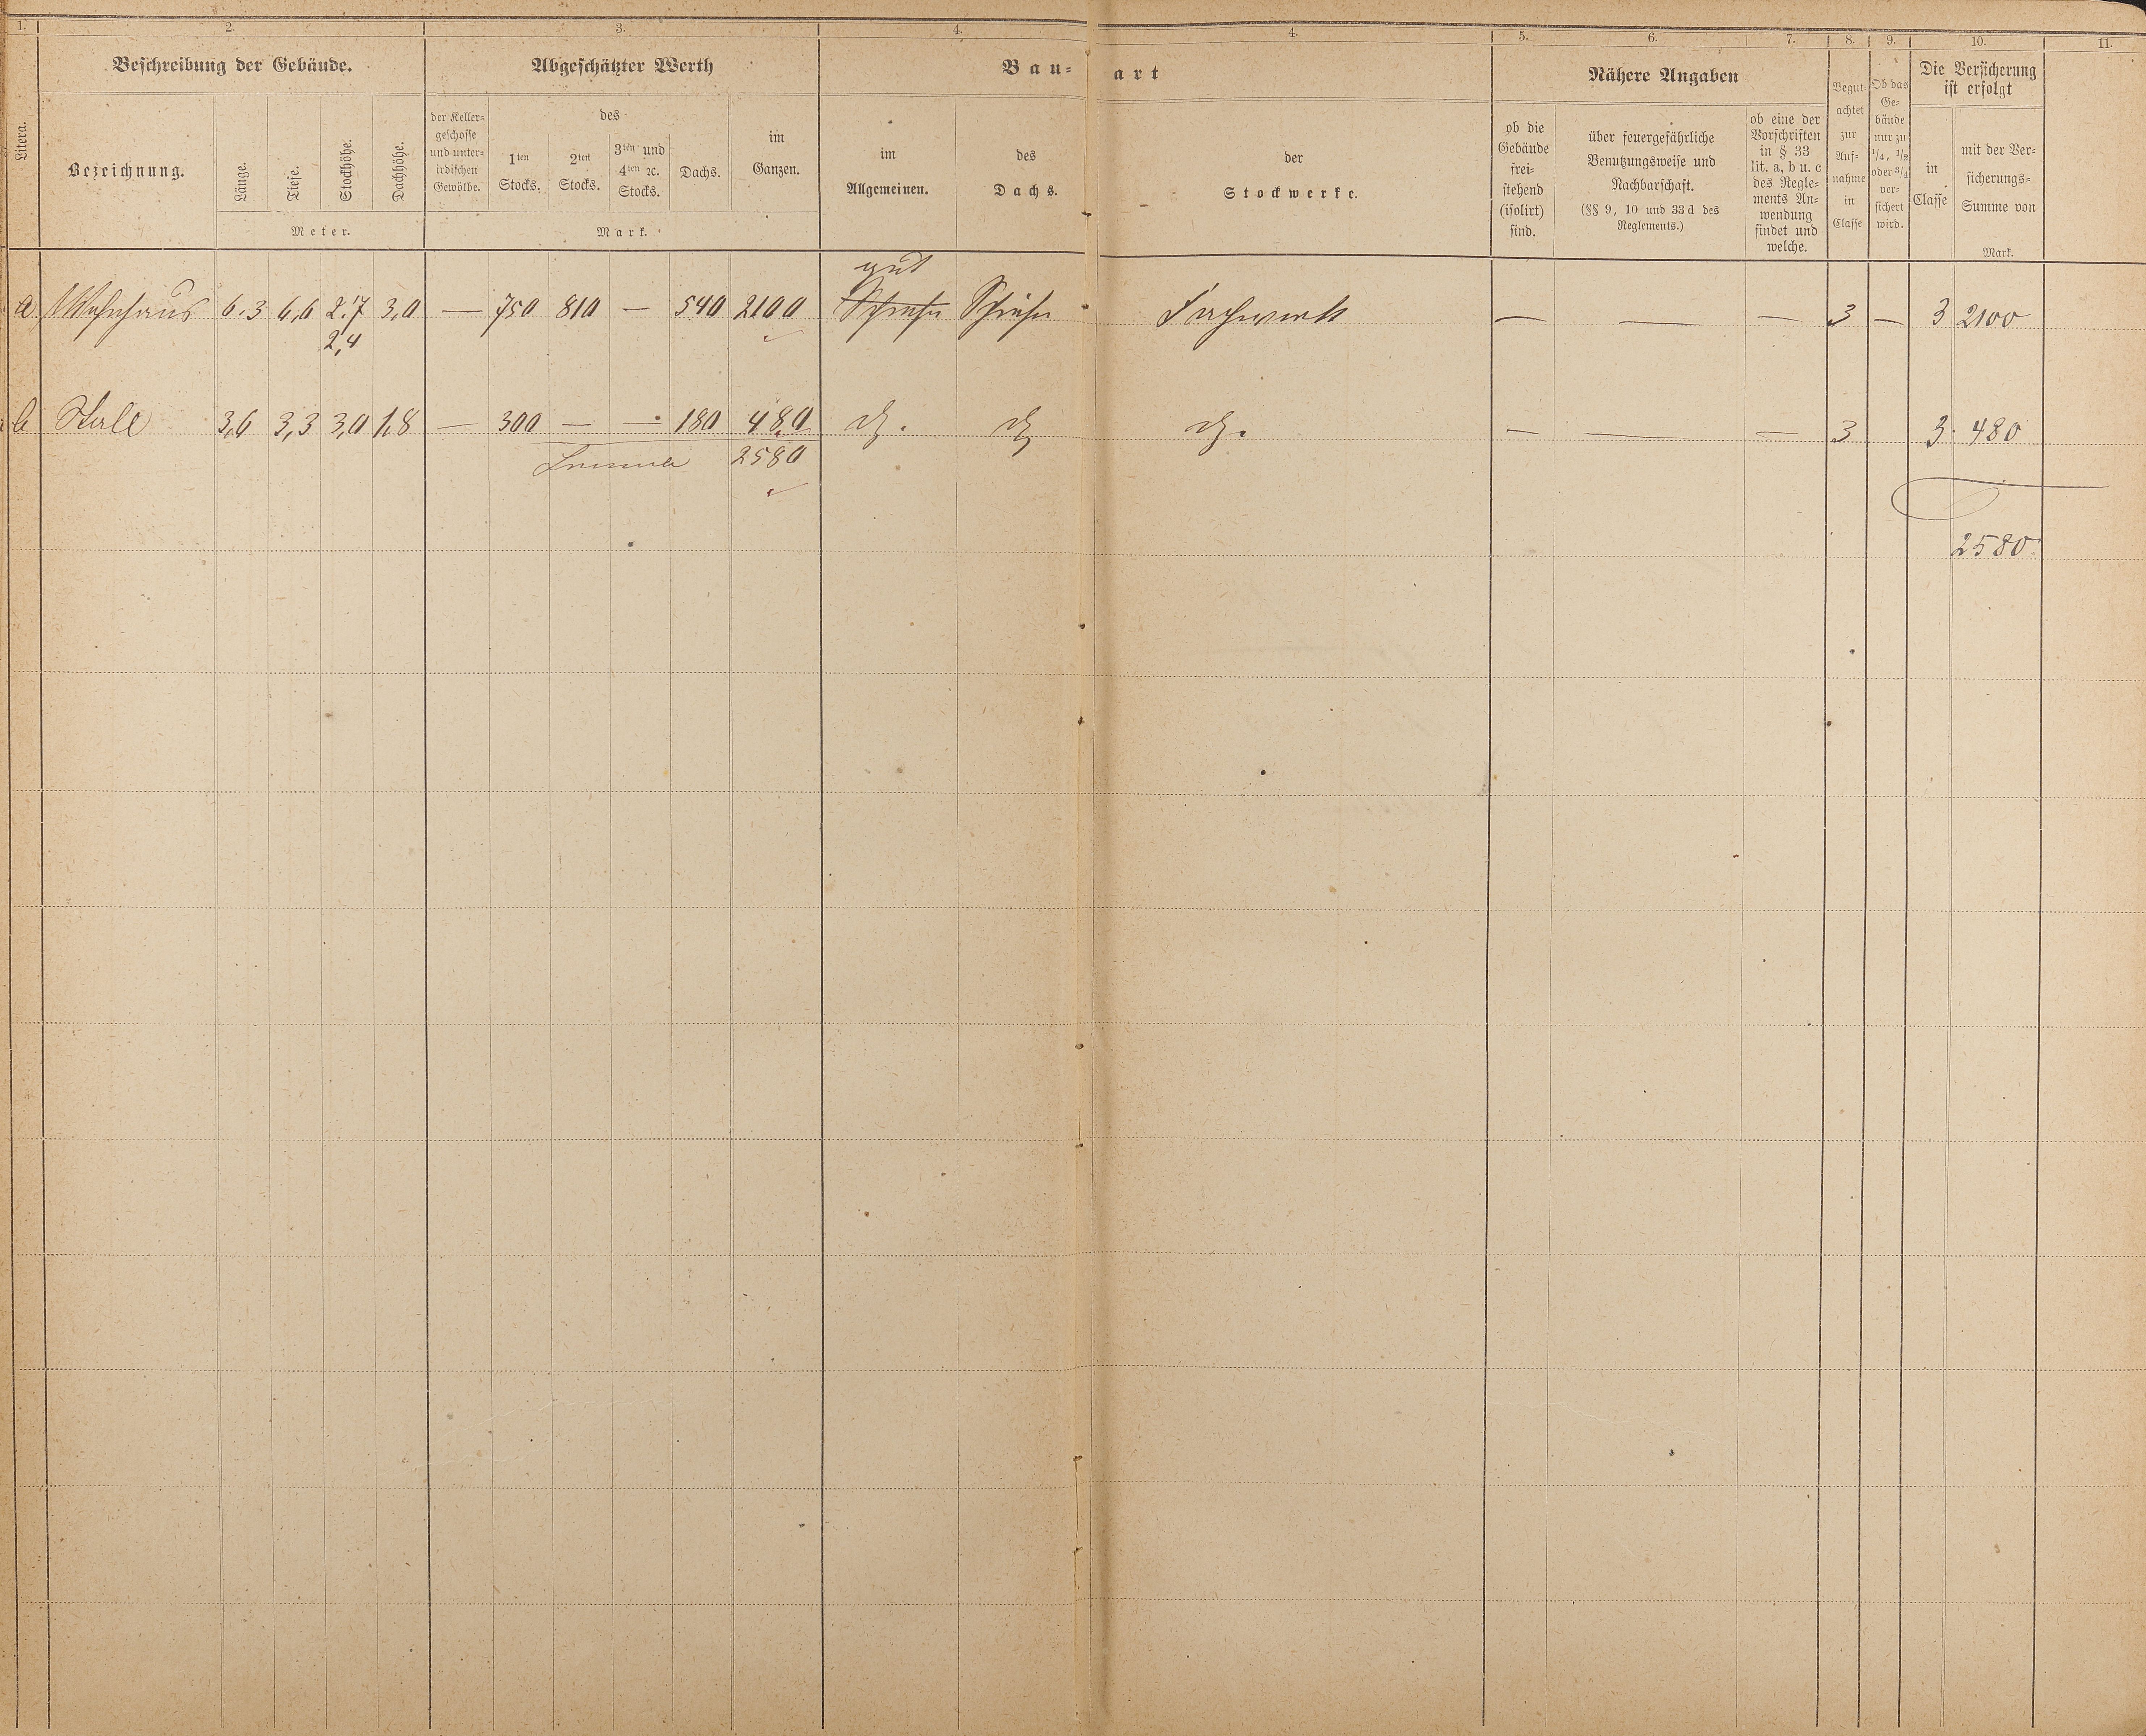 1. 2. 3. 4. 4. 5. 6. 7. 8. 9. 10. 11.
Beschreibung der Gebäude. Abgeschätzter Werth Bau-art Nähere Angaben Die Versicherung ist erfolgt
Litera.
Bezeichnung.
Länge.
Tiefe.
Stockhöhe.
Dachhöhe.
Meter.
der Keller-
geschosse
und unter-
irdischen
Gewölbe.
des
1ten
Stocks.
2ten
Stocks.
3ten und
4ten ꝛc.
Stocks.
Dachs.
im
Ganzen.
Mark.
im
Allgemeinen.
des
Dachs.
der
Stockwerke.
ob die
Gebäude
frei-
stehend
(isolirt)
sind.
über feuergefährliche
Benutzungsweise und
Nachbarschaft.
(§§ 9, 10 und 33 d des
Reglements.)
ob eine der
Vorschriften
in § 33
lit. a, b u. c
des Regle-
ments An-
wendung
findet und
welche.
Begut-
achtet
zur
Auf-
nahme
in
Classe
Ob das
Ge-
bäude
nur zu
1/4, 1/2
oder 3/4
ver-
sichert
wird.
in
Classe
mit der Ver-
sicherungs-
Summe von
Mark.
gut
a Wohnhaus 6.3 6,6 2.7 3,0 — 750 810 — 540 2100 Schiefer Schiefer Fachwerk — — — 3 — 3 2100
2,4
b Stall 3,6 3,3 3,0 1,8 — 300 — — 180 480 do. do do. — — — 3 3. 480
Summa 2580
2580